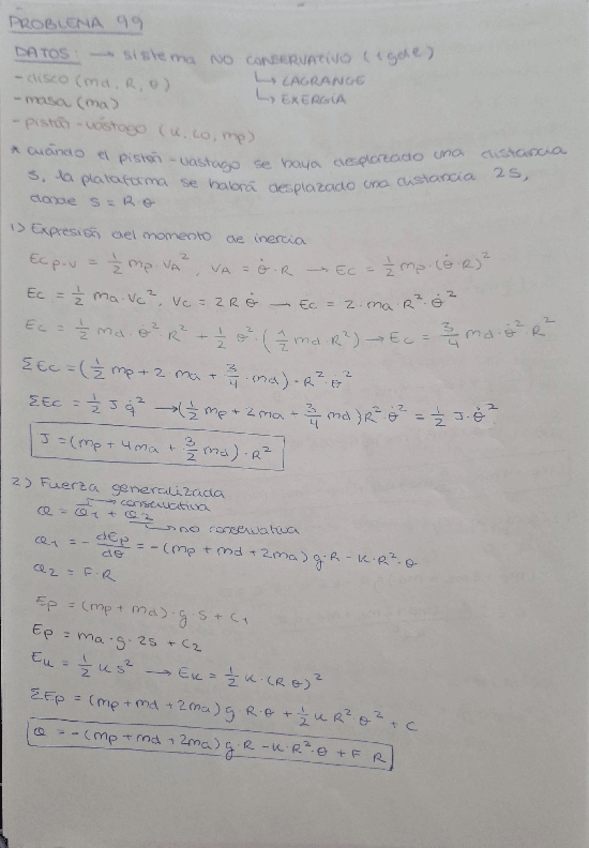 PROBLEMA 99
DATOS: → sistema NO CONSERVATIVO (1gde)
- disco (md, R, θ) ↳ LAGRANGE
- masa (ma) ↳ EXERGÍA
- pistón-vástago (K, Lo, mp)
* cuándo el pistón-vastago se haya desplazado una distancia
s, la plataforma se habrá desplazado una distancia 2s,
donde s = R θ
1) Expresión del momento de inercia
Ecp-v = 1/2 mp · VA², VA = θ̇ · R → Ec = 1/2 mp · (θ̇ · R)²
Ec = 1/2 ma · Vc², Vc = 2R θ̇ → Ec = 2 · ma · R² · θ̇²
Ec = 1/2 md · θ̇² · R² + 1/2 θ̇² · (1/2 md · R²) → Ec = 3/4 md · θ̇² · R²
ΣEc = (1/2 mp + 2 ma + 3/4 · md) · R² · θ̇²
ΣEc = 1/2 J q̇² → (1/2 mp + 2ma + 3/4 md) R² θ̇² = 1/2 J · θ̇²
J = (mp + 4ma + 3/2 md) · R²
2) Fuerza generalizada
Q = Q1 + Q2 → conservativa
→ no conservativa
Q1 = - dEp/dθ = -(mp + md + 2ma) g · R - K · R² · θ
Q2 = F · R
Ep = (mp + md) · g · s + C1
Ep = ma · g · 2s + C2
Ek = 1/2 K s² → Ek = 1/2 K · (R θ)²
ΣEp = (mp + md + 2ma) g · R · θ + 1/2 K R² θ² + C
Q = -(mp + md + 2ma) g · R - K · R² · θ + F R